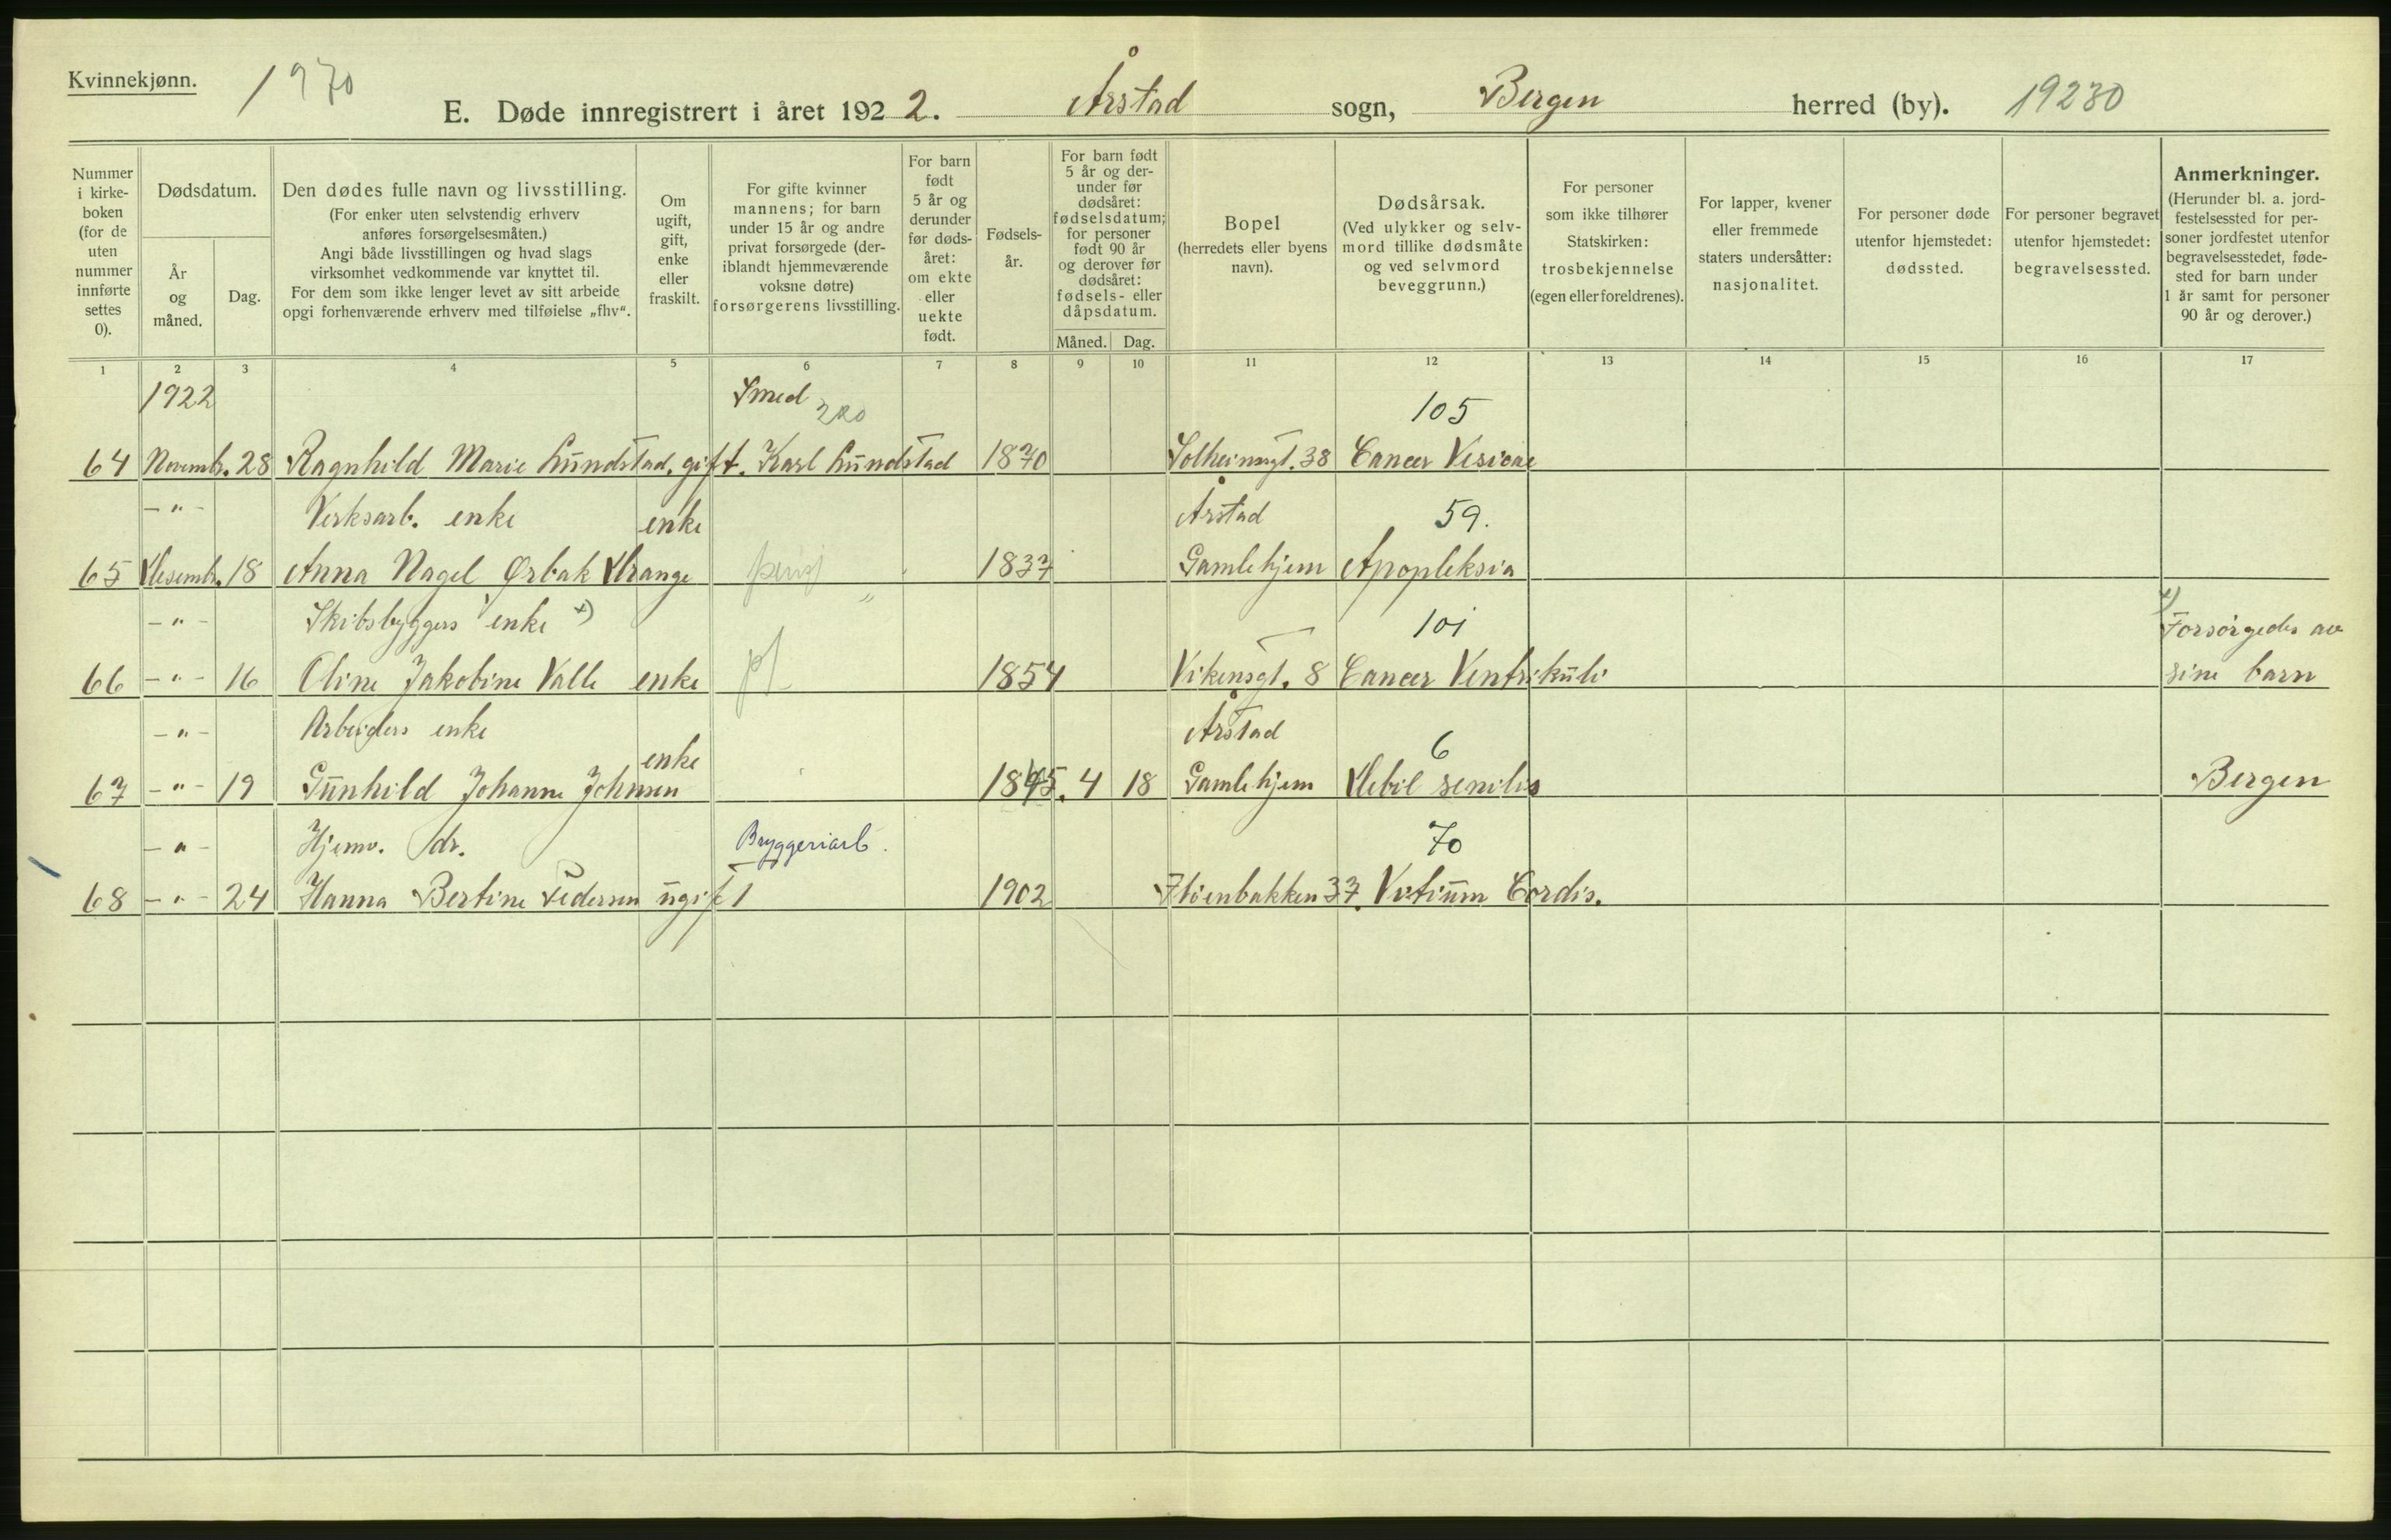 Kvinnekjønn.
1970
E. Døde innregistrert i året 1922. Årstad sogn, Bergen herred (by). 19230
Nummer i kirke-boken (for de uten nummer innførte settes 0).
Dødsdatum.
År og måned.
Dag.
Den dødes fulle navn og livsstilling.
(For enker uten selvstendig erhverv anføres forsørgelsesmåten.)
Angi både livsstillingen og hvad slags virksomhet vedkommende var knyttet til.
For dem som ikke lenger levet av sitt arbeide opgi forhenværende erhverv med tilføielse „fhv“.
Om ugift, gift, enke eller fraskilt.
For gifte kvinner mannens; for barn under 15 år og andre privat forsørgede (deriblandt hjemmeværende voksne døtre) forsørgerens livsstilling.
For barn født 5 år og derunder før døds-året: om ekte eller uekte født.
Fødsels-år.
For barn født 5 år og der-under før dødsåret: fødselsdatum; for personer født 90 år og derover før dødsåret: fødsels- eller dåpsdatum.
Måned. Dag.
Bopel
(herredets eller byens navn).
Dødsårsak.
(Ved ulykker og selv-mord tillike dødsmåte og ved selvmord beveggrunn.)
For personer som ikke tilhører Statskirken: trosbekjennelse (egen eller foreldrenes).
For lapper, kvener eller fremmede staters undersåtter: nasjonalitet.
For personer døde utenfor hjemstedet: dødssted.
For personer begravet utenfor hjemstedet: begravelsessted.
Anmerkninger.
(Herunder bl. a. jord-festelsessted for per-soner jordfestet utenfor begravelsesstedet, føde-sted for barn under 1 år samt for personer 90 år og derover.)
1 2 3 4 5 6 7 8 9 10 11 12 13 14 15 16 17
1922 Smed 220 105
64 Novemb. 28 Ragnhild Marie Lundstad, gift. Karl Lundstad 1870 Solheimsgt. 38 Cancer Vesicae
- " - Verksarb. enke enke Årstad 59.
65 Desemb. 18 Anna Nagel Ørbak Drange 1837 Gamlehjem Apopleksia
- " - Skibsbyggers enke x) 101 x) Forsørgedes av
66 - " - 16 Oline Jakobine Valle enke 1854 Vikensgt. 8 Cancer Ventrikuli sine barn
- " - Arbeiders enke enke Årstad 6
67 - " - 19 Gunhild Johanne Johnsen 1845. 4 18 Gamlehjem Debil senilis Bergen
- " - Hjemv. dr. Bryggeriarb. 70
68 - " - 24 Hanna Bertine Pedersen ugift 1902 Fløenbakken 37. Vitium Cordis.